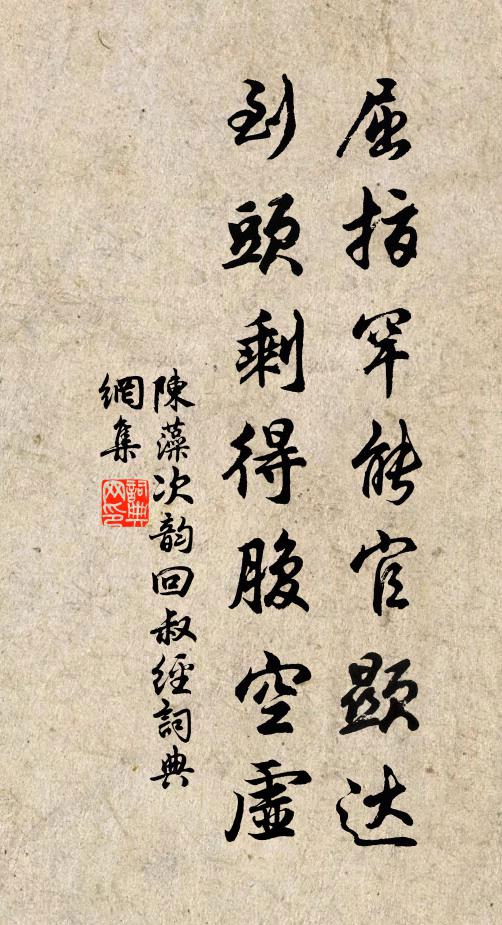 屈指罕能官顯达
到頭剩得腹空虛
陳藻次韵回叔經詞典
網集
詞典網印